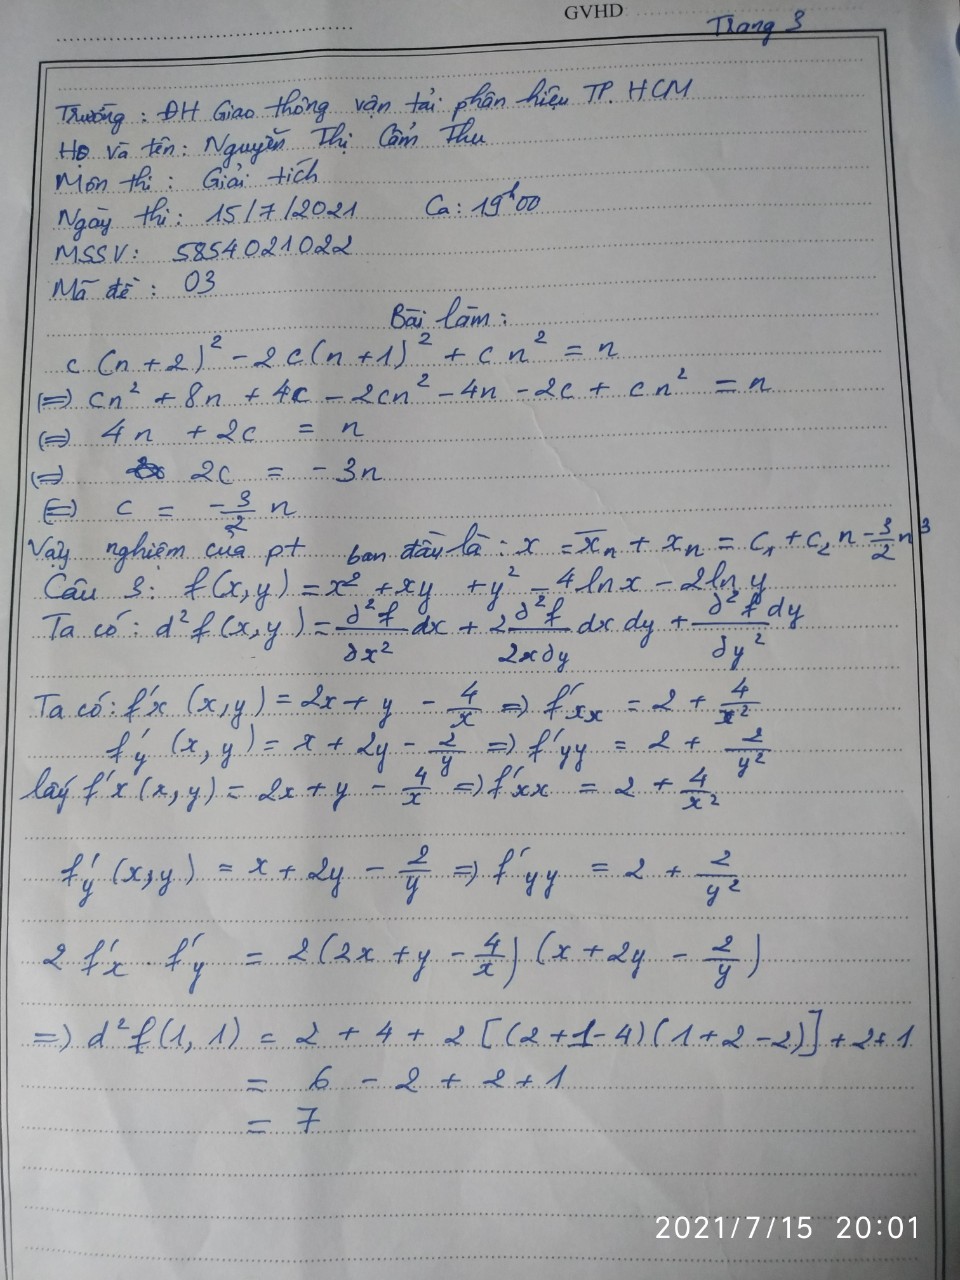 GVHD
Trang 3
Trường: ĐH Giao thông vận tải phân hiệu TP. HCM
Họ và tên: Nguyễn Thị Cẩm Thu
Môn thi: Giải tích
Ngày thi: 15/7/2021 Ca: 19h00
MSSV: 5854021022
Mã đề: 03
Bài làm:
c(n+2)² - 2c(n+1)² + cn² = n
(=) cn² + 8n + 4c - 2cn² - 4n - 2c + cn² = n
(=) 4n + 2c = n
(=) 2c = -3n
(=) c = -3/2 n
Vậy nghiệm của pt ban đầu là: x = x̄n + xn = C₁ + C₂n - 3/2 n³
Câu 3: f(x,y) = x² + xy + y² - 4lnx - 2lny
Ta có: d²f(x,y) = ∂²f/∂x² dx + 2 ∂²f/2x∂y dx dy + ∂²f/∂y² dy
Ta có: f'x (x,y) = 2x + y - 4/x =) f'xx = 2 + 4/x²
f'y (x,y) = x + 2y - 2/y =) f'yy = 2 + 2/y²
lấy f'x (x,y) = 2x + y - 4/x =) f'xx = 2 + 4/x²
f'y (x,y) = x + 2y - 2/y =) f'yy = 2 + 2/y²
2 f'x . f'y = 2(2x + y - 4/x)(x + 2y - 2/y)
=) d²f(1,1) = 2 + 4 + 2[(2+1-4)(1+2-2)] + 2+1
= 6 - 2 + 2 + 1
= 7
2021/7/15 20:01